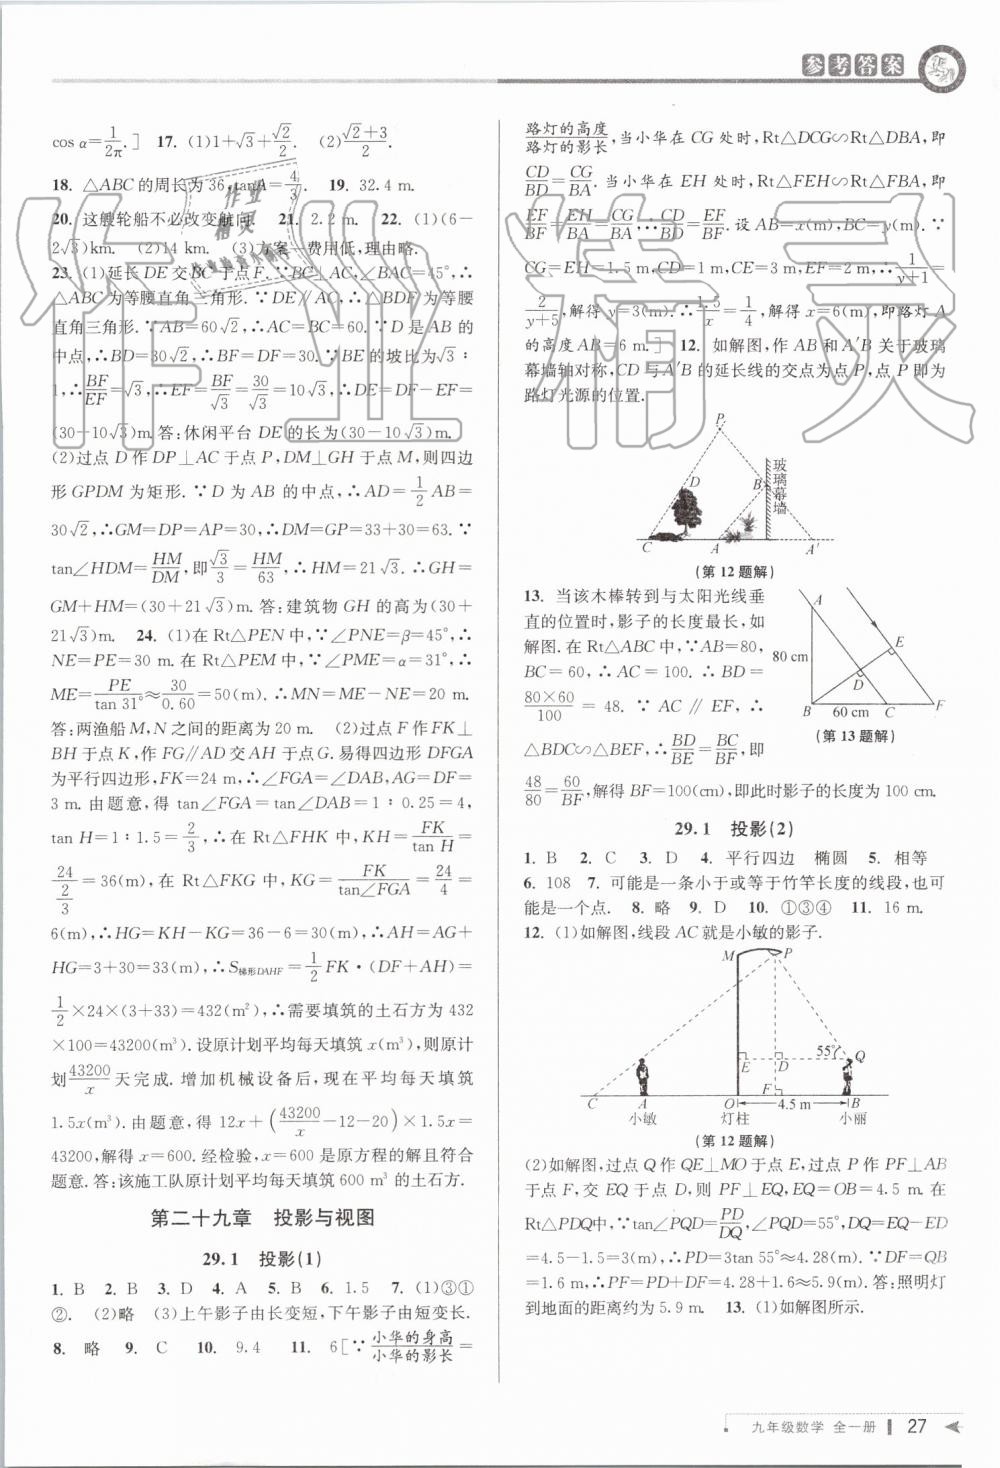 参考答案
cos α=1/2π.] 17. (1)1+√3+√2/2. (2)(√2+3)/2.
18. △ABC的周长为36,tanA=4/3. 19. 32.4 m.
20. 这艘轮船不必改变航向. 21. 2.2 m. 22. (1)(6-
2√3)km. (2)14 km. (3)方案一费用低,理由略.
23. (1)延长DE交BC于点F.∵BC⊥AC,∠BAC=45°,∴
△ABC为等腰直角三角形.∵DE∥AC,∴△BDF为等腰
直角三角形.∵AB=60√2,∴AC=BC=60.∵D是AB的
中点,∴BD=30√2,∴BF=DF=30.∵BE的坡比为√3∶
1,∴BF/EF=√3,∴EF=BF/√3=30/√3=10√3,∴DE=DF-EF=
(30-10√3)m.答:休闲平台DE的长为(30-10√3)m.
(2)过点D作DP⊥AC于点P,DM⊥GH于点M,则四边
形GPDM为矩形.∵D为AB的中点,∴AD=1/2AB=
30√2,∴GM=DP=AP=30,∴DM=GP=33+30=63.∵
tan∠HDM=HM/DM,即√3/3=HM/63,∴HM=21√3.∴GH=
GM+HM=(30+21√3)m.答:建筑物GH的高为(30+
21√3)m. 24. (1)在Rt△PEN中,∵∠PNE=β=45°,∴
NE=PE=30 m.在Rt△PEM中,∵∠PME=α=31°,∴
ME=PE/tan 31°≈30/0.60=50(m).∴MN=ME-NE=20 m.
答:两渔船M,N之间的距离为20 m. (2)过点F作FK⊥
BH于点K,作FG∥AD交AH于点G.易得四边形DFGA
为平行四边形,FK=24 m,∴∠FGA=∠DAB,AG=DF=
3 m.由题意,得tan∠FGA=tan∠DAB=1∶0.25=4,
tan H=1∶1.5=2/3,∴在Rt△FHK中,KH=FK/tan H=
24/(2/3)=36(m),在Rt△FKG中,KG=FK/tan∠FGA=24/4=
6(m),∴HG=KH-KG=36-6=30(m),∴AH=AG+
HG=3+30=33(m),∴S梯形DAHF=1/2FK·(DF+AH)=
1/2×24×(3+33)=432(m²),∴需要填筑的土石方为432
×100=43200(m³).设原计划平均每天填筑x(m³),则原计
划43200/x天完成.增加机械设备后,现在平均每天填筑
1.5x(m³).由题意,得12x+(43200/x-12-20)×1.5x=
43200,解得x=600.经检验,x=600是原方程的解且符合
题意.答:该施工队原计划平均每天填筑600 m³的土石方.
第二十九章 投影与视图
29.1 投影(1)
1. B 2. B 3. D 4. A 5. B 6. 1.5 7. (1)③①
②. (2)略 (3)上午影子由长变短,下午影子由短变长.
8. 略 9. C 10. 9.4 11. 6[∵小华的身高/小华的影长=
路灯的高度/路灯的影长,当小华在CG处时,Rt△DCG∽Rt△DBA,即
CD/BD=CG/BA.当小华在EH处时,Rt△FEH∽Rt△FBA,即
EF/BF=EH/BA=CG/BA∴CD/BD=EF/BF.设AB=x(m),BC=y(m).∵
CG=EH=1.5 m,CD=1 m,CE=3 m,EF=2 m,∴1/(y+1)=
2/(y+5),解得y=3(m).∴1.5/x=1/4,解得x=6(m),即路灯A
的高度AB=6 m.] 12. 如解图,作AB和A′B关于玻璃
幕墙轴对称,CD与A′B的延长线的交点为点P,点P即为
路灯光源的位置.
P
D
B
玻璃幕墙
C A A′
(第12题解)
13. 当该木棒转到与太阳光线垂
直的位置时,影子的长度最长,如
解图.在Rt△ABC中,∵AB=80,
BC=60,∴AC=100.∴BD=
80×60/100=48.∵AC∥EF,∴
△BDC∽△BEF,∴BD/BE=BC/BF,即
A
E
80 cm
D
B 60 cm C F
(第13题解)
48/80=60/BF,解得BF=100(cm),即此时影子的长度为100 cm.
29.1 投影(2)
1. B 2. C 3. D 4. 平行四边 椭圆 5. 相等
6. 108 7. 可能是一条小于或等于竹竿长度的线段,也可
能是一个点. 8. 略 9. D 10. ①③④ 11. 16 m.
12. (1)如解图,线段AC就是小敏的影子.
M P
55° Q
E D
F
C A O 4.5 m B
小敏 灯柱 小丽
(第12题解)
(2)如解图,过点Q作QE⊥MO于点E,过点P作PF⊥AB
于点F,交EQ于点D,则PF⊥EQ,EQ=OB=4.5 m.在
Rt△PDQ中,∵tan∠PQD=PD/DQ,∠PQD=55°,DQ=EQ-ED
=4.5-1.5=3(m),∴PD=3tan 55°≈4.28(m).∵DF=QB
=1.6 m,∴PF=PD+DF=4.28+1.6≈5.9(m).答:照明灯
到地面的距离约为5.9 m. 13. (1)如解图所示.
九年级数学 全一册 27
作业精灵